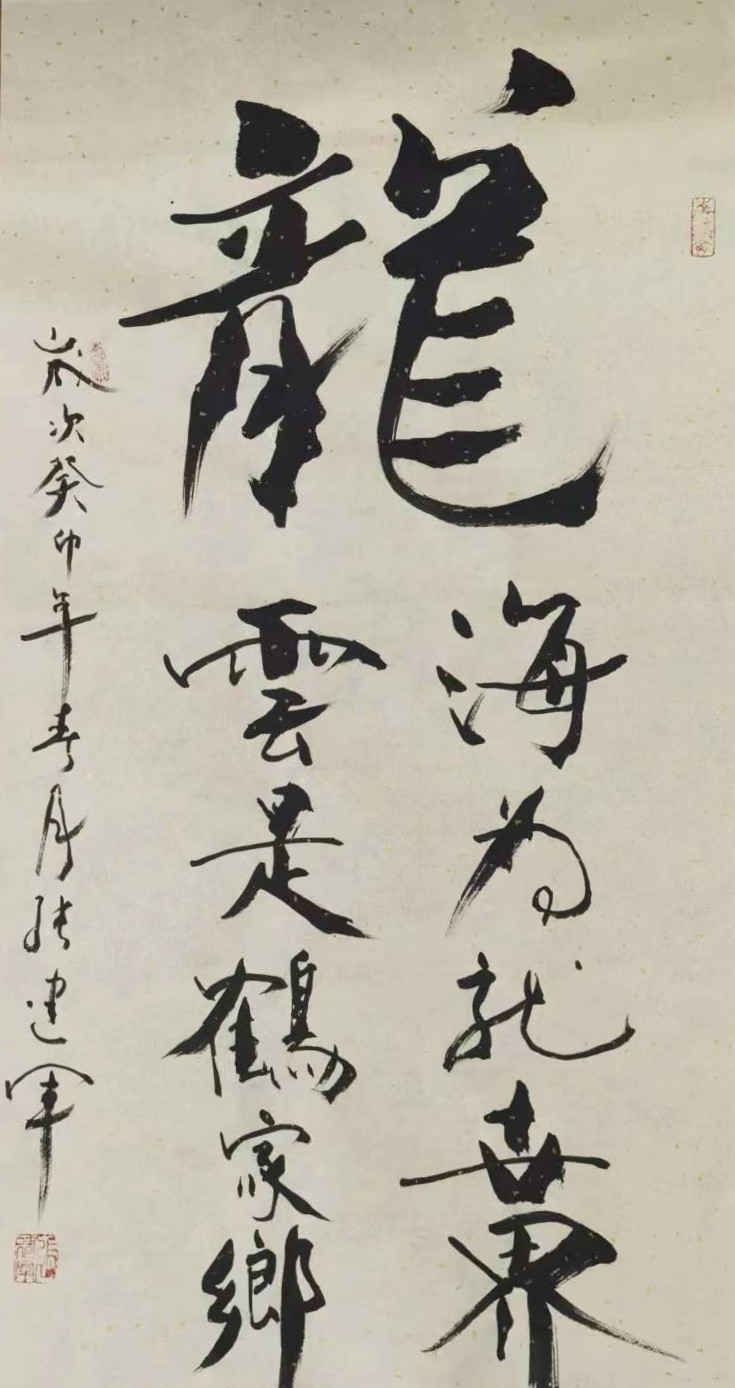 龍
海為龙世界
雲是鶴家鄉
歲次癸卯年春月張建軍